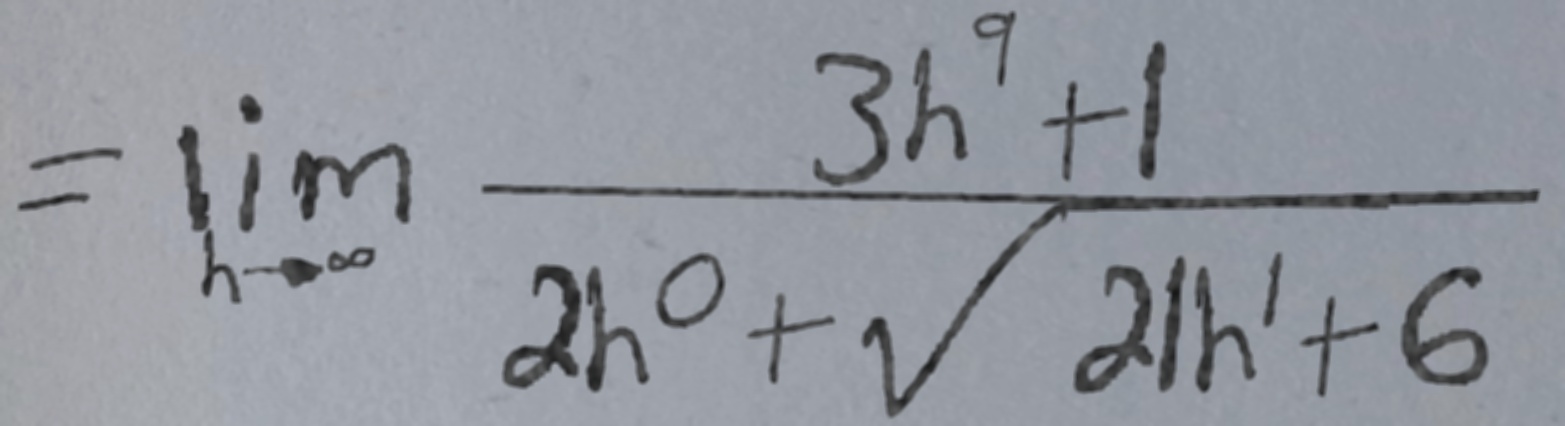 = \lim_{h \to \infty} \frac{3h^9 + 1}{2h^0 + \sqrt{21h^1 + 6}}